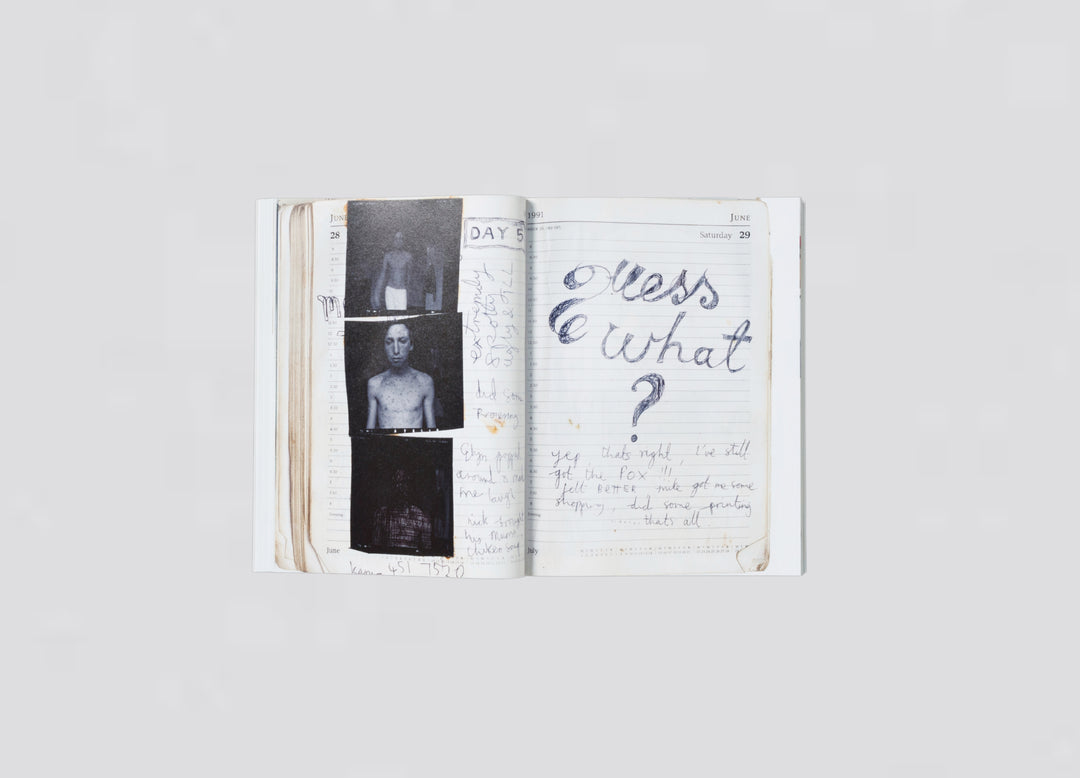 JUNE
28
DAY 5
extremely
spotty
ugly & ILL
did some
Elzn
around
me laugh
nick brought
his mums
chicken soup
June
451 7520
1991
JUNE
Saturday 29
Guess
what
?
yep thats right, I've still
got the POX !!!
felt BETTER mik got me some
shopping, did some printing
...... thats all
July